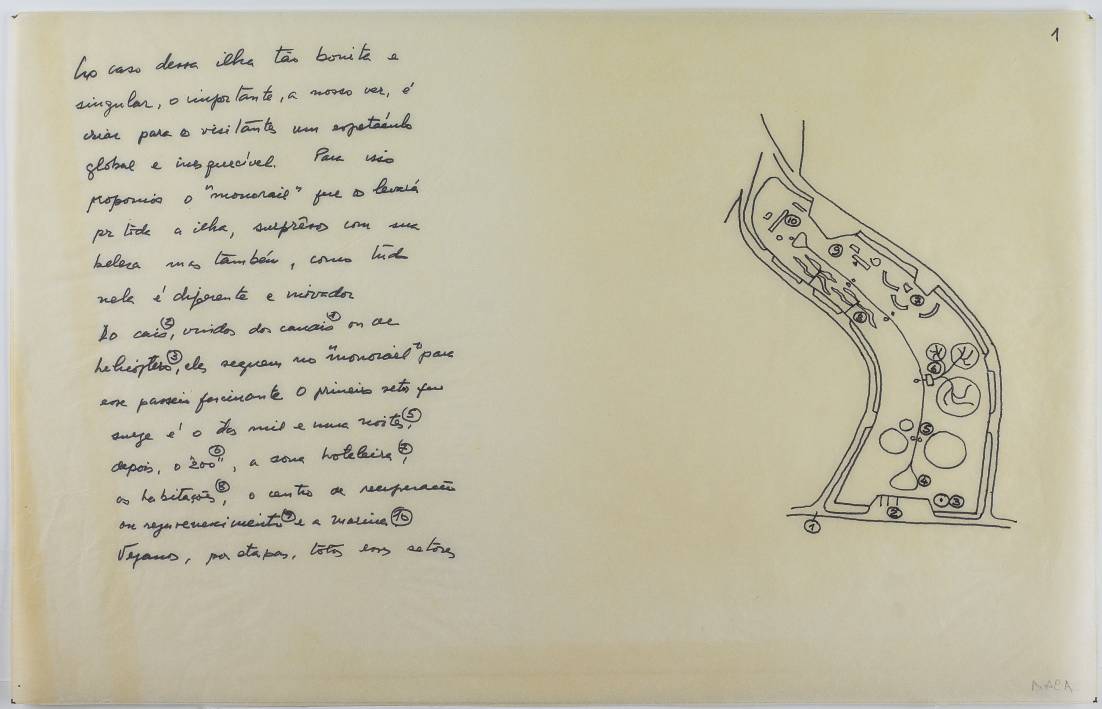 1
No caso dessa ilha tão bonita e
singular, o importante, a nosso ver, é
criar para o visitantes um espetáculo
global e inesquecível. Para isso
propomos o "monorail" que o levará
por toda a ilha, surprêso com sua
beleza mas também, como tudo
nela é diferente e inovador
Do cais②, vindos dos canais① ou de
helicóptero③, eles seguem no "monorail" para
esse passeio fascinante O primeiro setor que
surge é o das mil e uma noites⑤,
depois, o "zoo"⑥, a zona hoteleira⑦,
as habitações⑧, o centro de recuperação
ou rejuvenescimento⑨ e a marina⑩
Vejamos, por etapas, todos esses setores
10
9
7
8
6
5
4
3
2
1